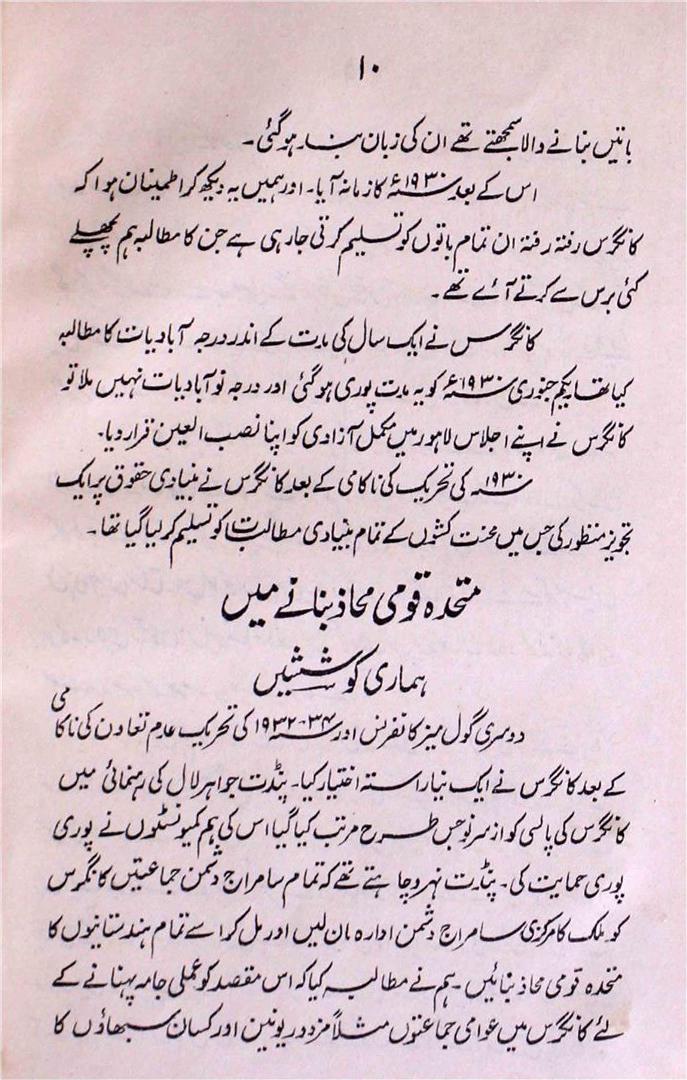 ۱۰
باتیں بنانے والا سمجھتے تھے ان کی زبان بند ہوگئی۔
اس کے بعد ۱۹۳۰ء کا زمانہ آیا۔ اور ہمیں یہ دیکھ کر اطمینان ہوا کہ
کانگرس رفتہ رفتہ ان تمام باتوں کو تسلیم کرتی جارہی ہے جن کا مطالبہ ہم پچھلے
کئی برس سے کرتے آئے تھے۔
کانگرس نے ایک سال کی مدت کے اندر درجہ آبادیات کا مطالبہ
کیا تھا یکم جنوری ۱۹۳۰ء کو یہ مدت پوری ہوگئی اور درجہ نوآبادیات نہیں ملا تو
کانگرس نے اپنے اجلاس لاہور میں مکمل آزادی کو اپنا نصب العین قرار دیا۔
۱۹۳۰ کی تحریک کی ناکامی کے بعد کانگرس نے بنیادی حقوق پر ایک
تجویز منظور کی جس میں محنت کشوں کے تمام بنیادی مطالبات کو تسلیم کرلیا گیا تھا۔
متحدہ قومی محاذ بنانے میں
ہماری کوششیں
دوسری گول میز کانفرنس اور ۳۴-۱۹۳۲ کی تحریک عدم تعاون کی ناکامی
کے بعد کانگرس نے ایک نیا راستہ اختیار کیا۔ پنڈت جواہر لال کی رہنمائی میں
کانگرس کی پالسی کو از سر نو جس طرح مرتب کیا گیا اس کی ہم کمیونسٹوں نے پوری
پوری حمایت کی۔ پنڈت نہرو چاہتے تھے کہ تمام سامراج دشمن جماعتیں کانگرس
کو ملک کا مرکزی سامراج دشمن ادارہ مان لیں اور مل کر اسے تمام ہندستانیوں کا
متحدہ قومی محاذ بنائیں۔ ہم نے مطالبہ کیا کہ اس مقصد کو عملی جامہ پہنانے کے
لئے کانگرس میں عوامی جماعتوں مثلاً مزدور یونین اور کسان سبھاؤں کا